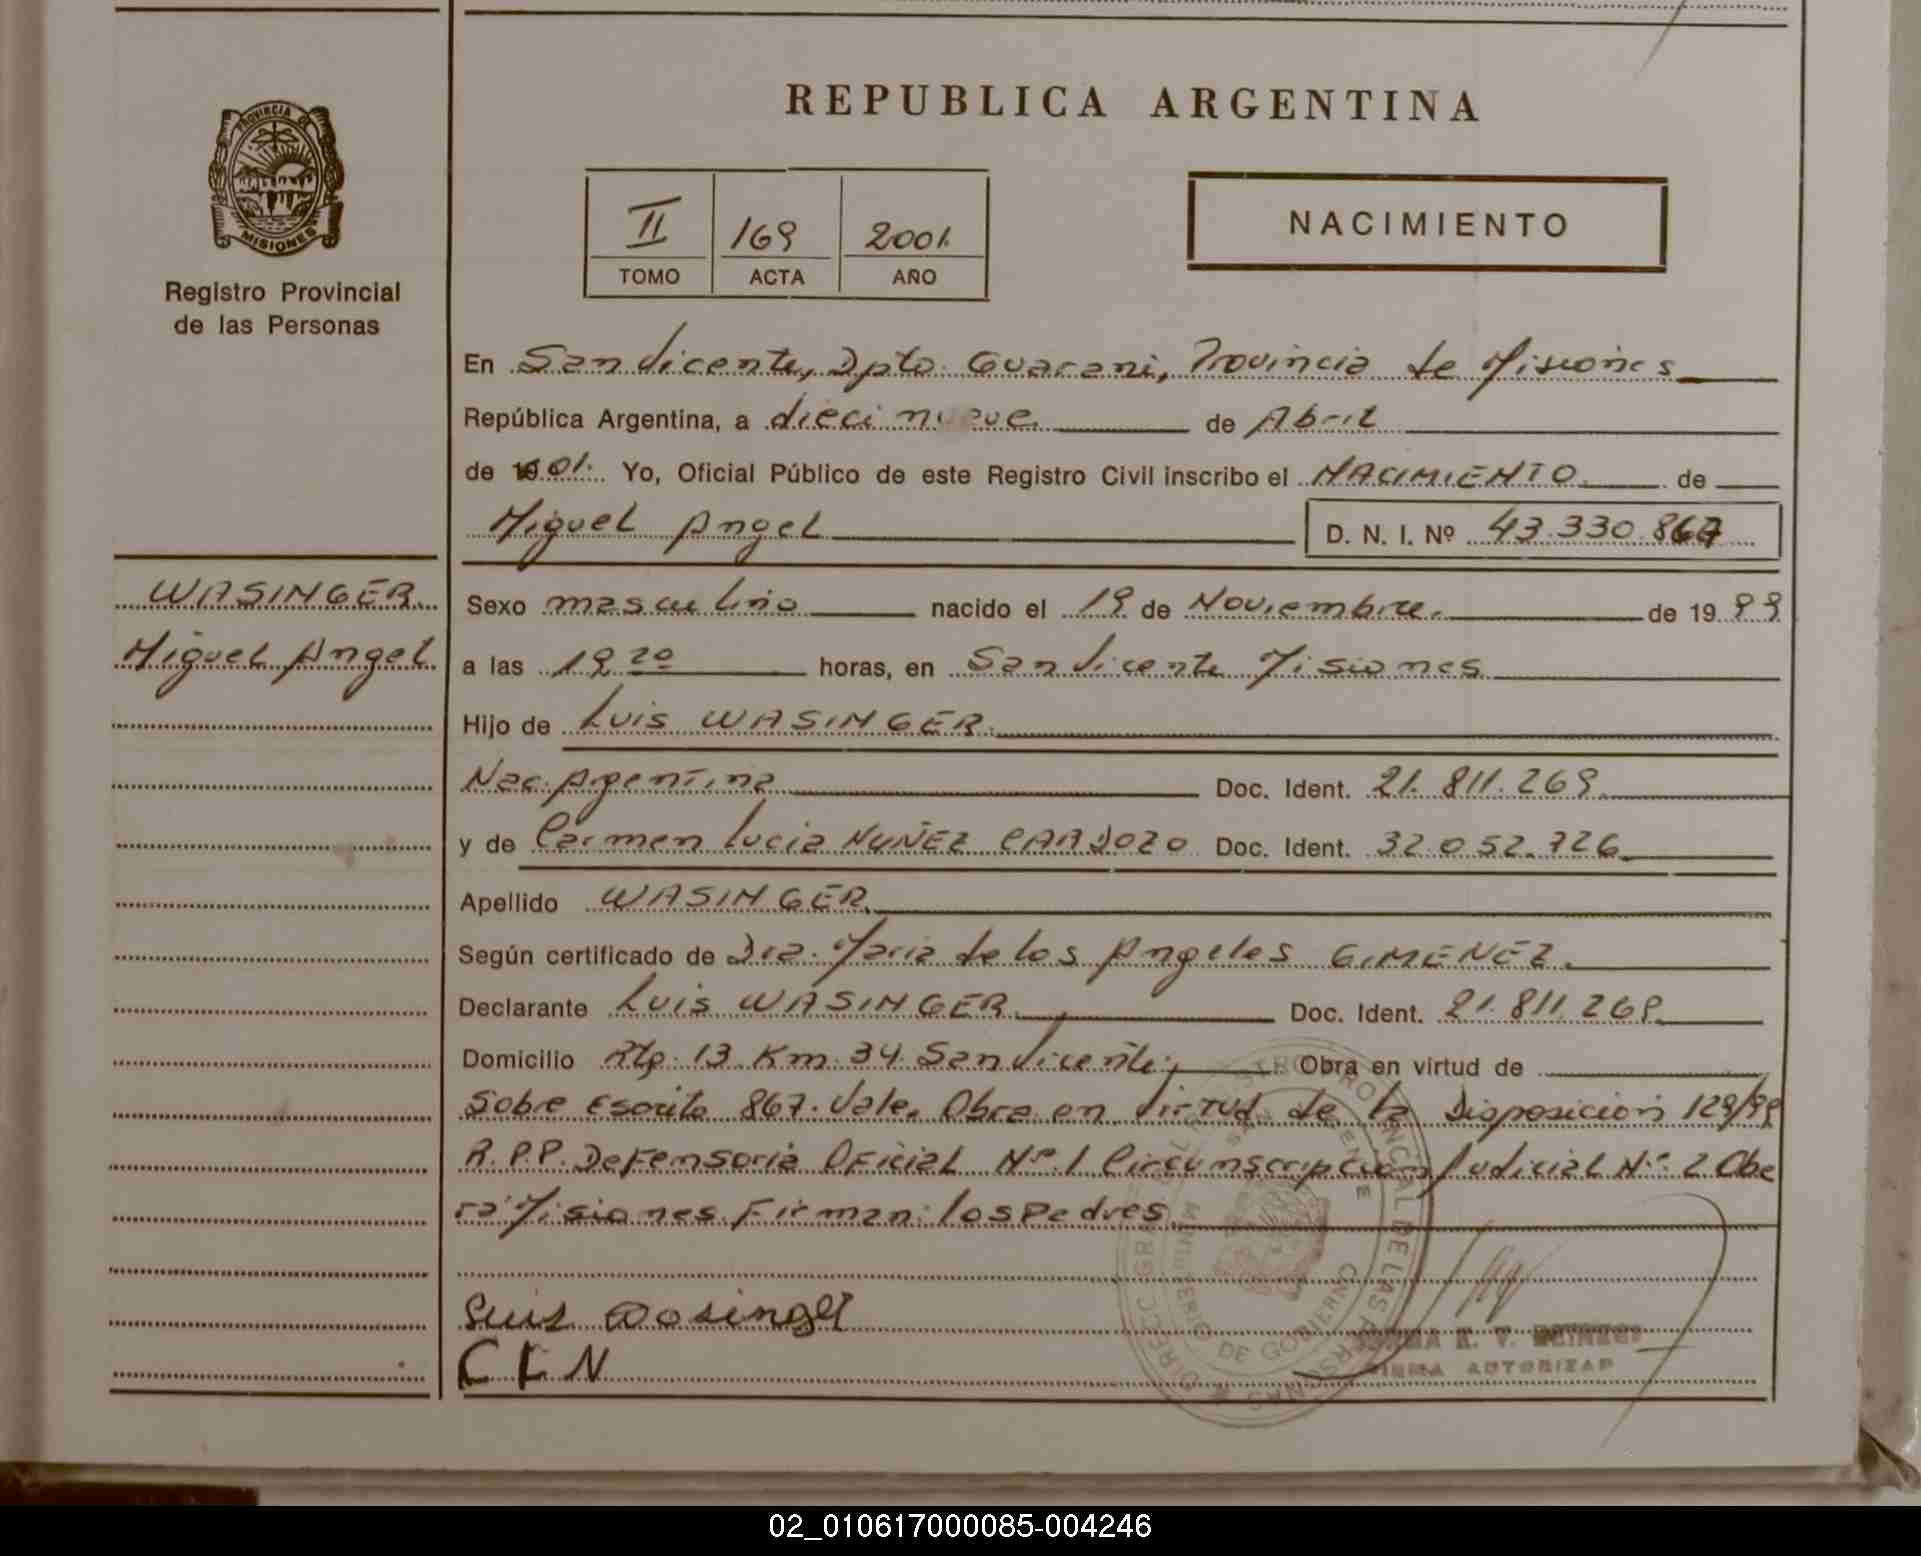 REPUBLICA ARGENTINA
PROVINCIA DE
MISIONES
Registro Provincial
de las Personas
II 169 2001.
TOMO ACTA AÑO
NACIMIENTO
En San Vicente, Dpto. Guarani, Provincia de Misiones
República Argentina, a dieci nueve de Abril
de 2001. Yo, Oficial Público de este Registro Civil inscribo el NACIMIENTO de
Miguel Angel D. N. I. Nº 43.330.867
WASINGER
Miguel Angel
Sexo masculino nacido el 19 de Noviembre. de 1999
a las 19 20 horas, en San Vicente Misiones
Hijo de Luis WASINGER.
Nac. Argentina Doc. Ident. 21.811.269.
y de Carmen Lucia NUÑEZ CARDOZO Doc. Ident. 32.052.726
Apellido WASINGER
Según certificado de Dra. Maria de los Angeles GIMENEZ.
Declarante Luis WASINGER Doc. Ident. 21.811.269
Domicilio Rtp. 13 Km. 34. San Vicente; Obra en virtud de
Sobre Escrito 867. Vale. Obra en virtud de la Disposicion 129/99
R.P.P. Defensoria Oficial Nº 1 Circunscripcion Judicial Nº 2 Obe
ra Misiones. Firman: los Padres
Luis Wasinger
C L N
FIRMA AUTORIZAD
02_010617000085-004246